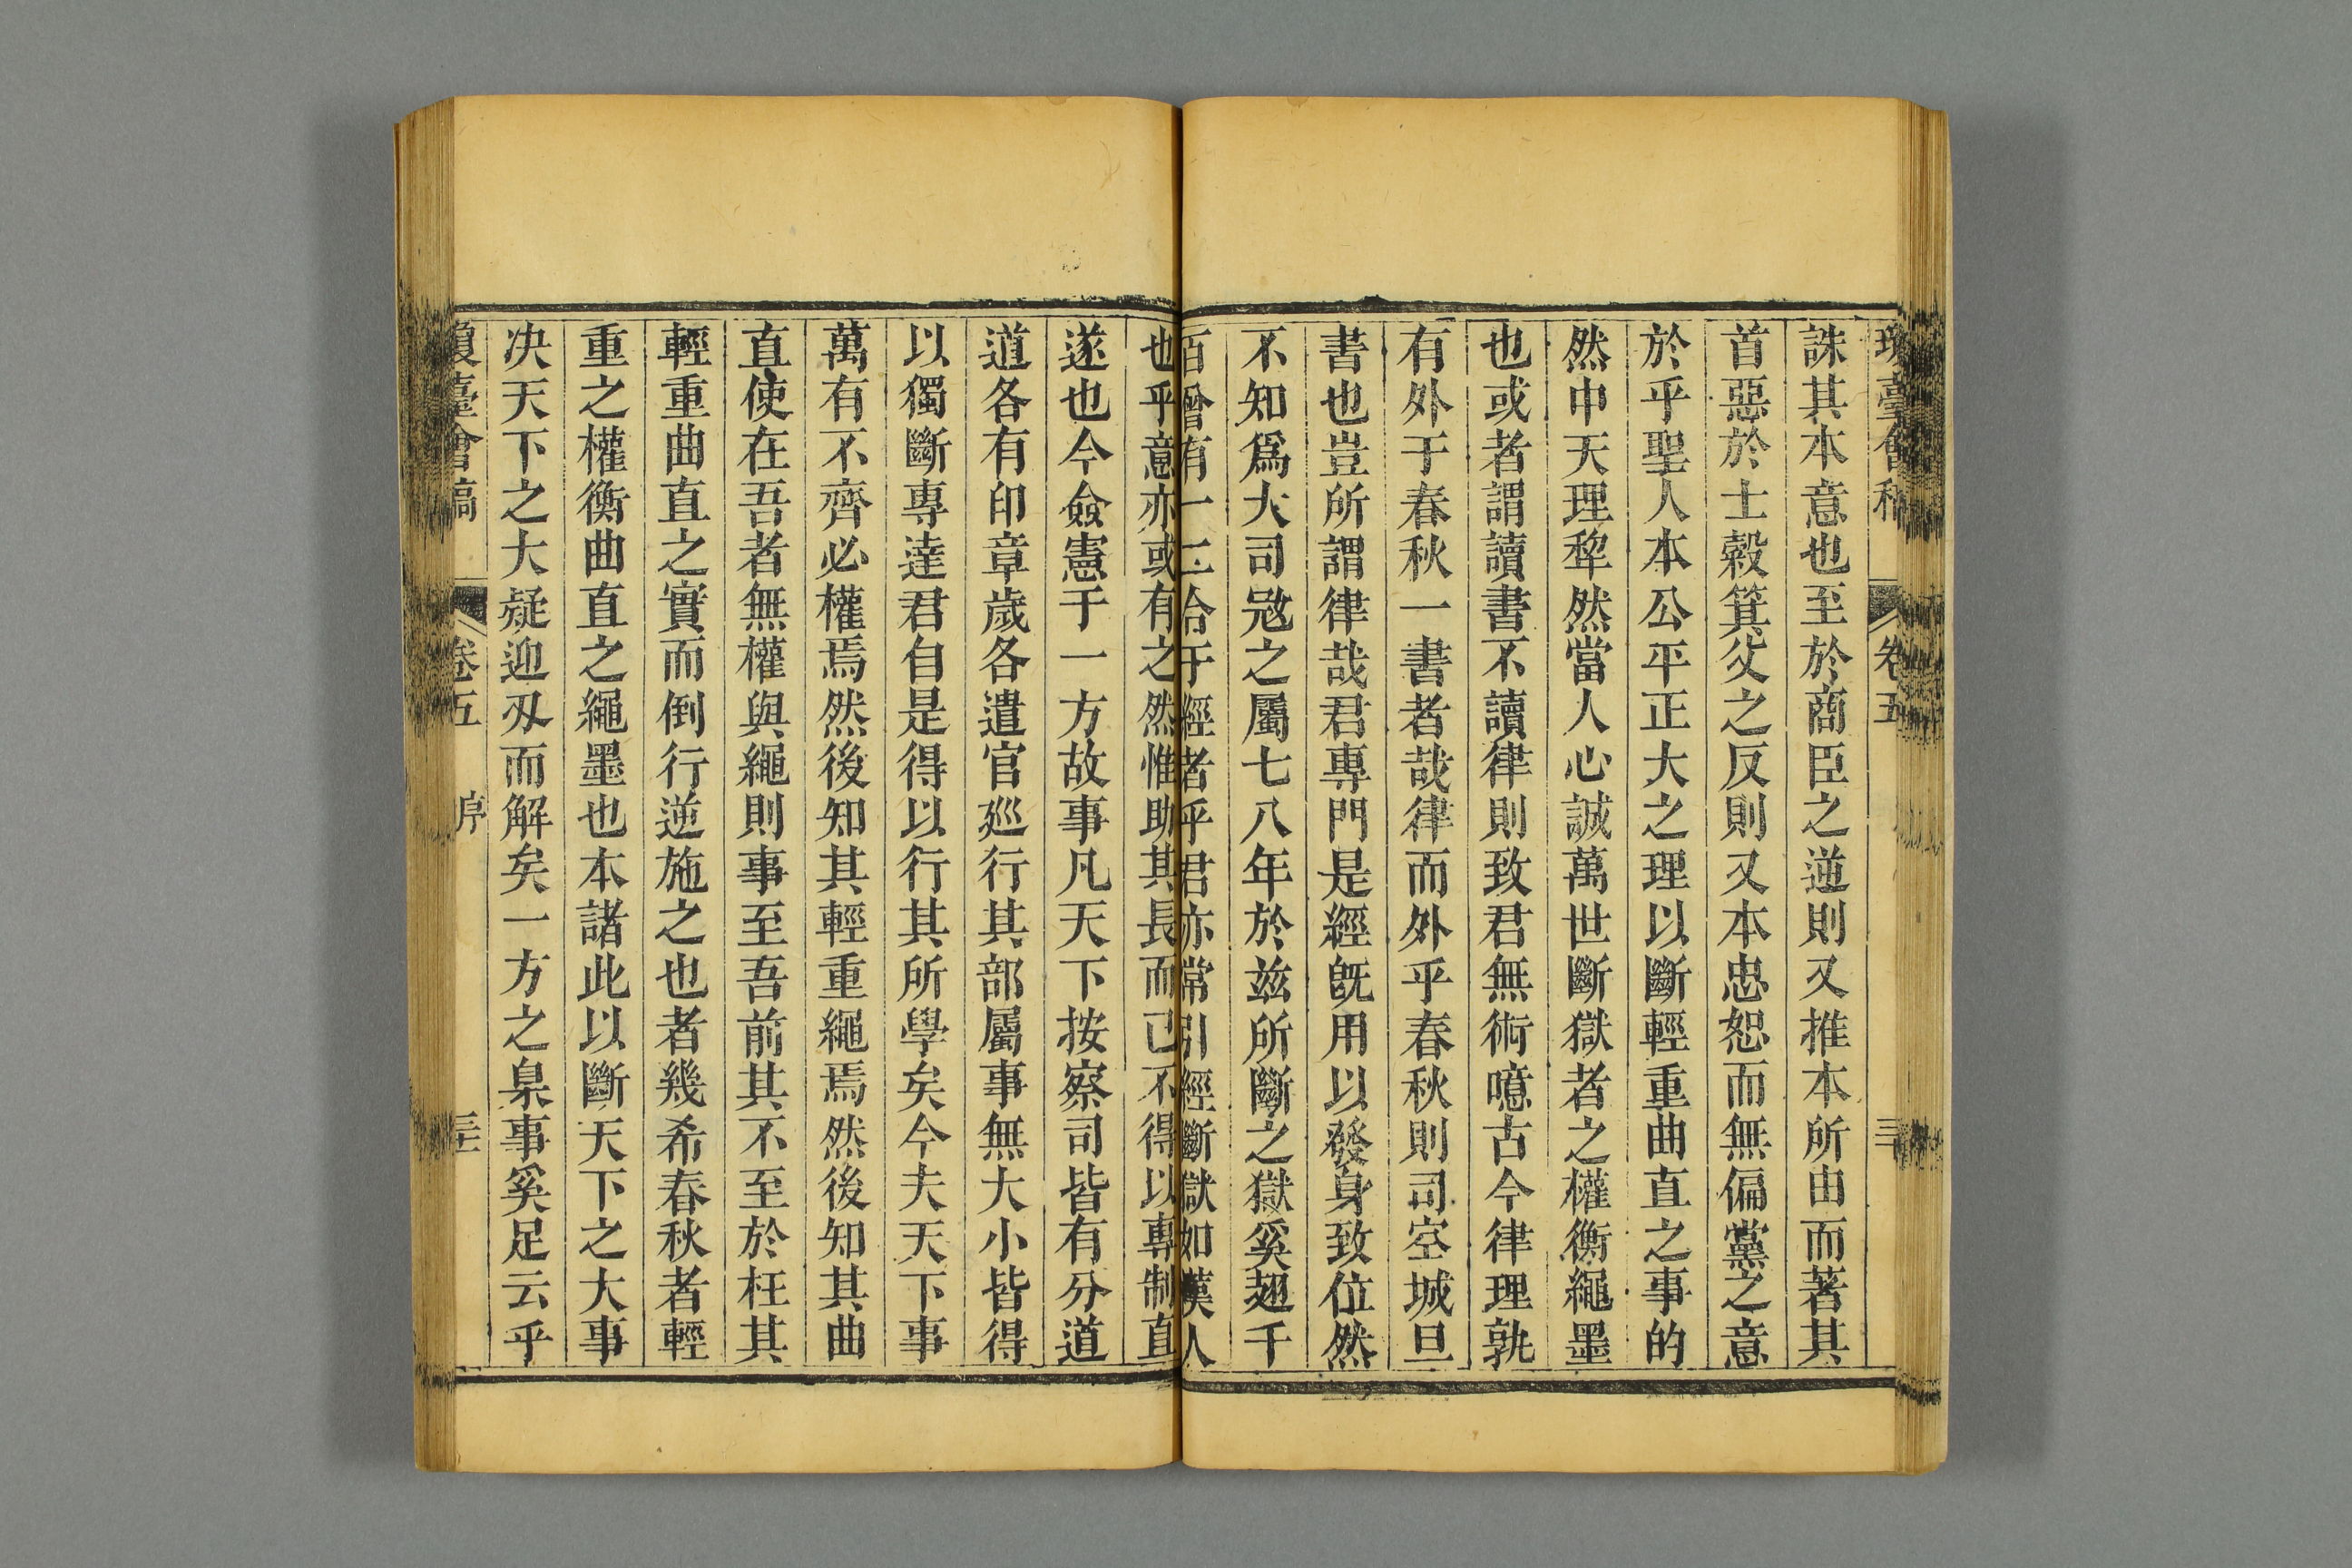 瓊臺會稿 卷五 三
誅其本意也至於商臣之逆則又推本所由而著其
首惡於士穀箕父之反則又本忠恕而無偏黨之意
於乎聖人本公平正大之理以斷輕重曲直之事的
然中天理犂然當人心誠萬世斷獄者之權衡繩墨
也或者謂讀書不讀律則致君無術噫古今律理孰
有外于春秋一書者哉律而外乎春秋則司空城旦
書也豈所謂律哉君專門是經旣用以發身致位然
不知爲大司冦之屬七八年於兹所斷之獄奚翅千
百曾有一二合于經者乎君亦常引經斷獄如漢人
也乎意亦或有之然惟助其長而已不得以專制直
遂也今僉憲于一方故事凡天下按察司皆有分道
道各有印章歲各遣官廵行其部屬事無大小皆得
以獨斷專達君自是得以行其所學矣今夫天下事
萬有不齊必權焉然後知其輕重繩焉然後知其曲
直使在吾者無權與繩則事至吾前其不至於枉其
輕重曲直之實而倒行逆施之也者幾希春秋者輕
重之權衡曲直之繩墨也本諸此以斷天下之大事
决天下之大疑迎刃而解矣一方之臬事奚足云乎
瓊臺會稿 卷五 序